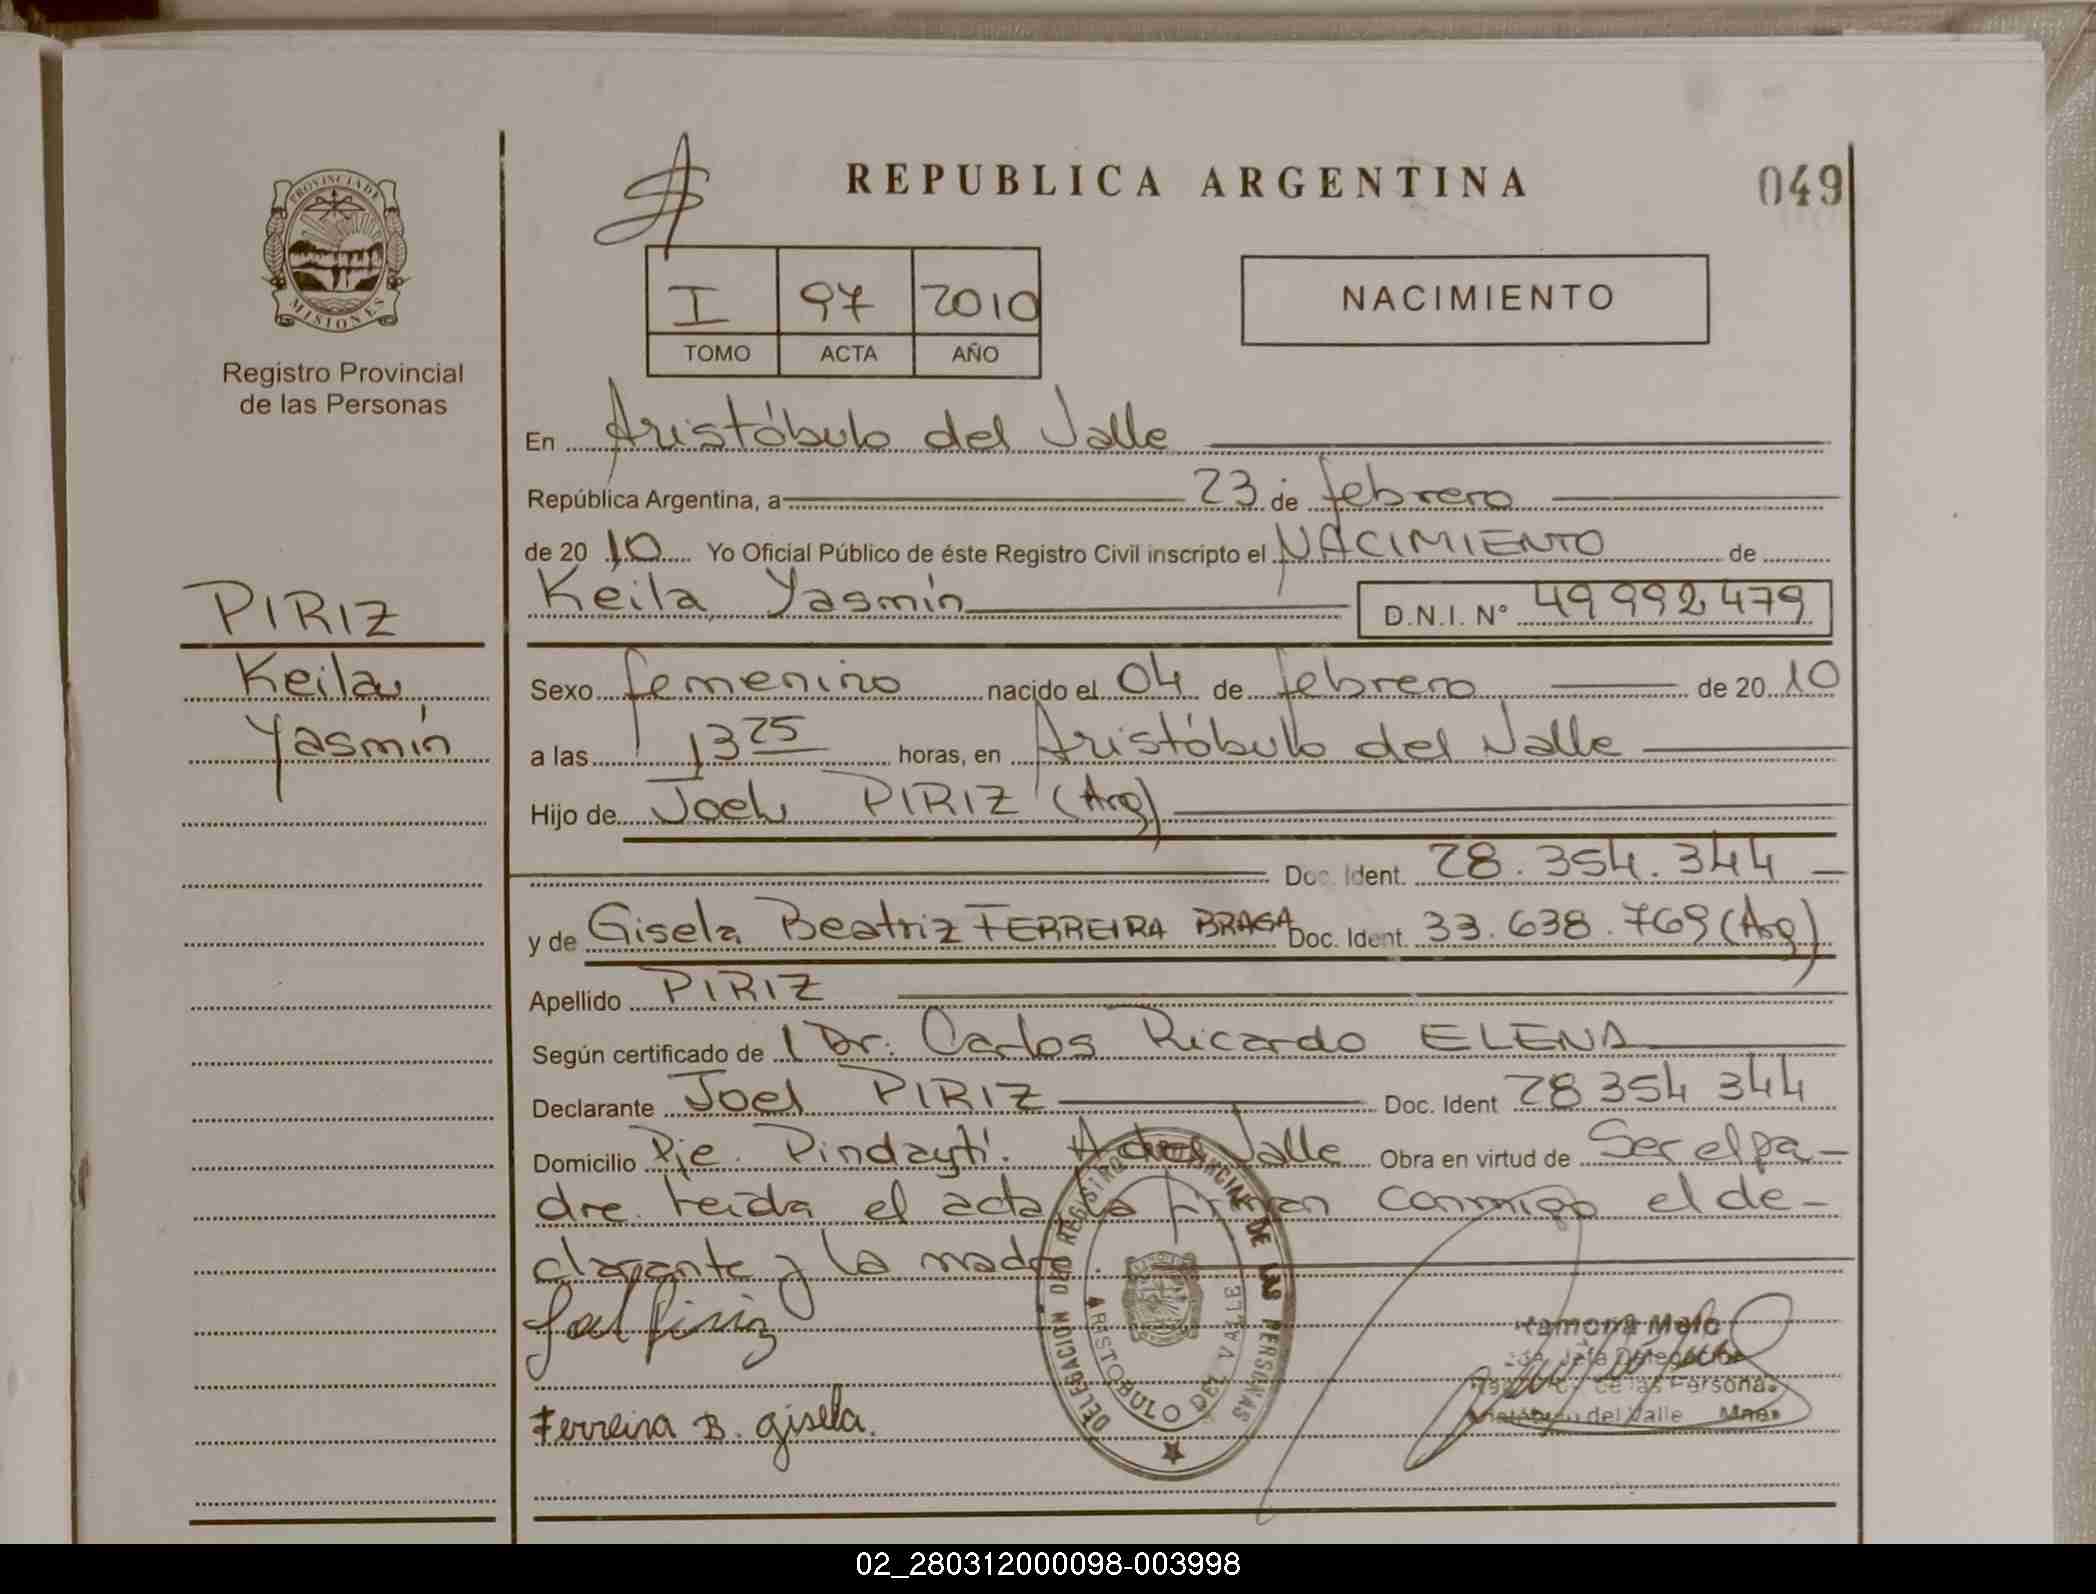 REPUBLICA ARGENTINA
049
PROVINCIA DE
MISIONES
Registro Provincial
de las Personas
I 97 2010
TOMO ACTA AÑO
NACIMIENTO
En Aristóbulo del Valle
República Argentina, a 23 de febrero
de 20 10 Yo Oficial Público de éste Registro Civil inscripto el NACIMIENTO de
Keila Yasmín D.N.I. N° 49 992 479
PIRIZ
Keila
Yasmín
Sexo femenino nacido el 04 de febrero de 20 10
a las 13 25 horas, en Aristóbulo del Valle
Hijo de Joel PIRIZ (Arg)
Doc. Ident. 28.354.344
y de Gisela Beatriz FERREIRA BRAGA Doc. Ident. 33.638.769 (Arg)
Apellido PIRIZ
Según certificado de Dr. Carlos Ricardo ELENA
Declarante Joel PIRIZ Doc. Ident 28 354 344
Domicilio Pje. Pindaytí. A del Valle Obra en virtud de Ser el pa-
dre leida el acta la firman conmigo el de-
clarante y la madre.
Joel Piriz
Ferreira B. gisela.
DELEGACION DEL REGISTRO PROVINCIAL DE LAS PERSONAS
ARISTOBULO DEL VALLE
Ramona Melo
Jefa Delegación
de las Personas
Aristóbulo del Valle Mnes
02_280312000098-003998